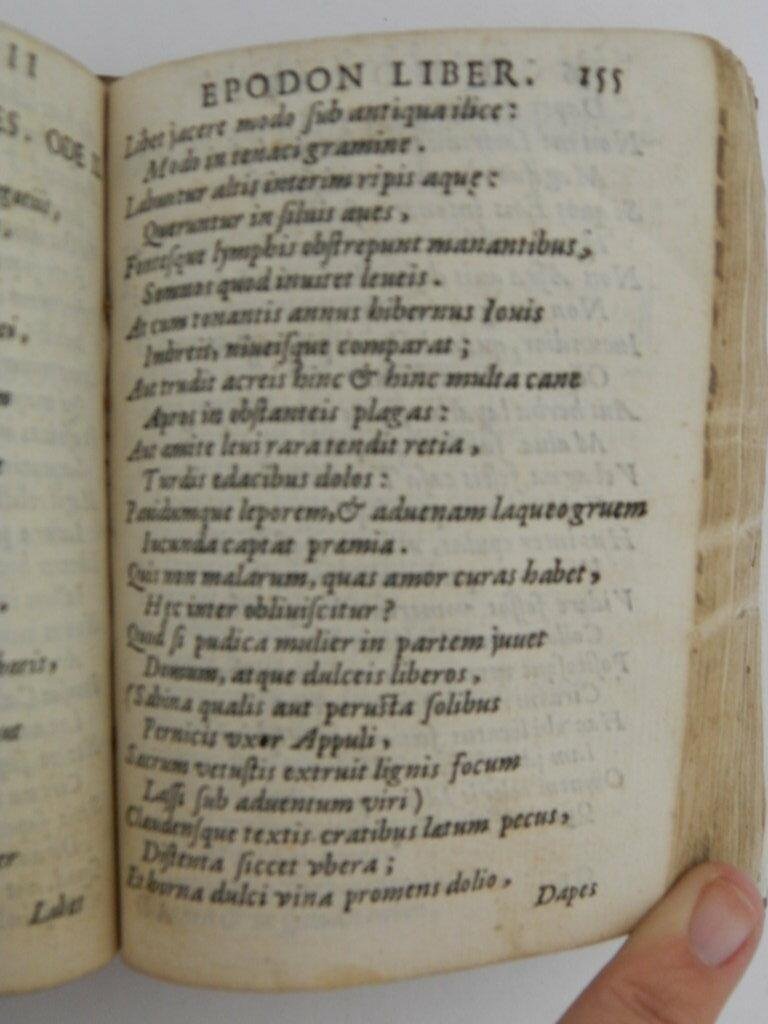 II
ES. ODE
EPODON LIBER. 155
Libet jacere modo sub antiqua ilice:
Modo in tenaci gramine.
Labuntur altis interim ripis aquę:
Queruntur in siluis aues,
Fontesque lymphis obstrepunt manantibus,
Somnos quod inuitet leueis.
At cum tonantis annus hibernus Iouis
Imbreis, niueisque comparat;
Aut trudit acreis hinc & hinc multa cane
Apros in obstanteis plagas:
Aut amite leui rara tendit retia,
Turdis edacibus dolos:
Pauidumque leporem, & aduenam laqueo gruem
Iucunda captat pręmia.
Quis non malarum, quas amor curas habet,
Hęc inter obliuiscitur?
Quod si pudica mulier in partem juuet
Domum, atque dulceis liberos,
(Sabina qualis aut perusta solibus
Pernicis vxor Appuli,
Sacrum vetustis extruit lignis focum
Lassi sub aduentum viri)
Claudensque textis cratibus lętum pecus,
Distenta siccet vbera;
Et horna dulci vina promens dolio,
Dapes
Libet